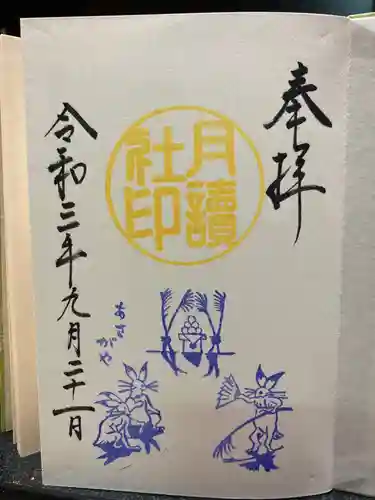 奉拝
月讀
社印
令和三年九月二十一日
あさ
がや